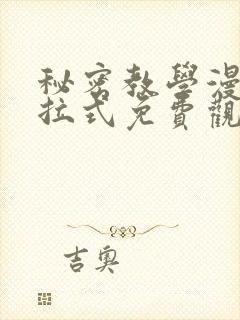 秘密教學漫
拉式免費觀
吉奧